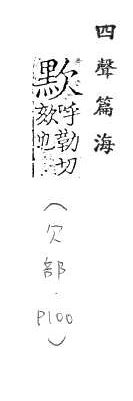 四聲篇海
呼勒切
欬也
(欠部.P100)